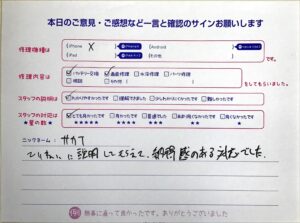 本日のご意見・ご感想など一言と確認のサインお願いします
修理機種は
iPhone X
Android
iPad
その他
です。
修理内容は
バッテリー交換 画面修理 水没修理 パーツ修理
その他
をしてもらいました。
スタッフの説明は
わかりやすかった 理解できました 少しわかりにくかった 難しかった
スタッフの対応は
★星の数★
とても良かった 良かった 普通でした あまり良くなかった 良くなかった
★★★★★ ★★★★ ★★★ ★★ ★
ニックネーム: サカて
ていねいに説明してもらえて、納得感のある対応でした。
無事に直って良かったです。ありがとうございました